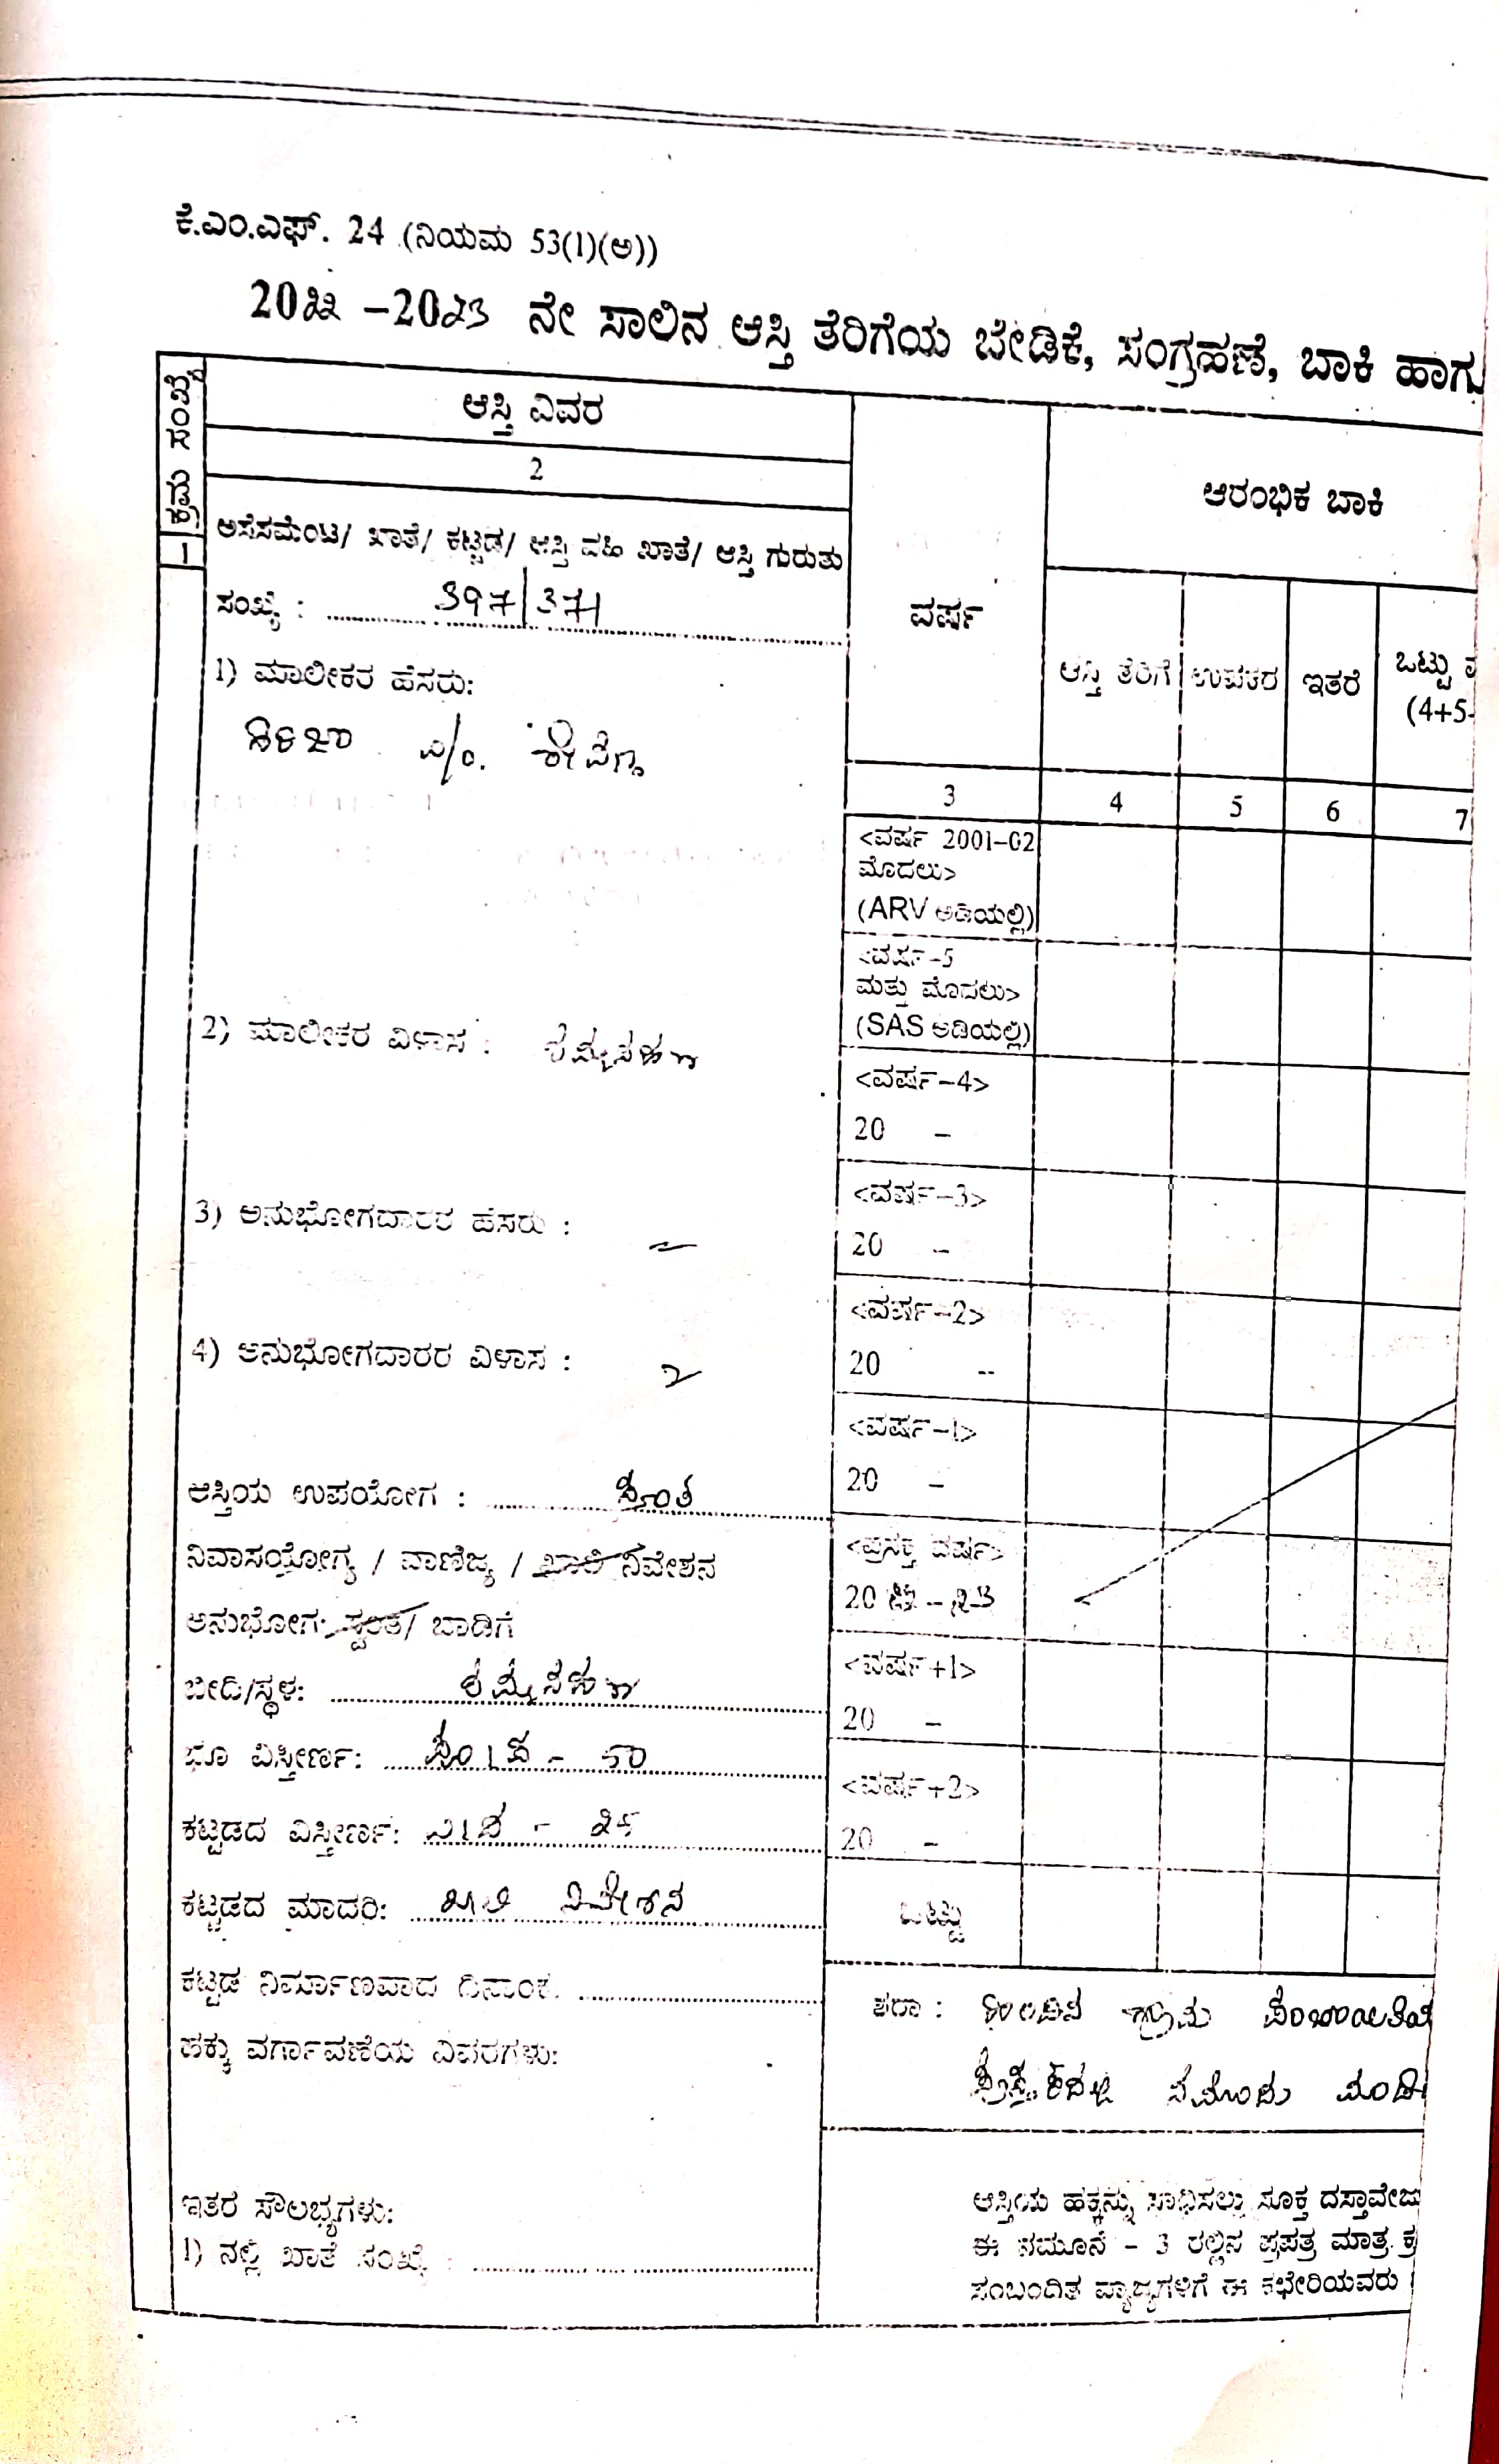 ಕೆ.ಎಂ.ಎಫ್. 24 (ನಿಯಮ 53(1)(ಅ))
2022 -2023 ನೇ ಸಾಲಿನ ಆಸ್ತಿ ತೆರಿಗೆಯ ಬೇಡಿಕೆ, ಸಂಗ್ರಹಣೆ, ಬಾಕಿ ಹಾಗು
ಕ್ರಮ ಸಂಖ್ಯೆ
1
ಆಸ್ತಿ ವಿವರ
2
ಅಸೆಸಮೆಂಟ/ ಖಾತೆ/ ಕಟ್ಟಡ/ ಆಸ್ತಿ ವಹಿ ಖಾತೆ/ ಆಸ್ತಿ ಗುರುತು
ಸಂಖ್ಯೆ : 397/371
1) ಮಾಲೀಕರ ಹೆಸರು:
2) ಮಾಲೀಕರ ವಿಳಾಸ :
3) ಅನುಭೋಗದಾರರ ಹೆಸರು : -
4) ಅನುಭೋಗದಾರರ ವಿಳಾಸ :
ಆಸ್ತಿಯ ಉಪಯೋಗ : ಸ್ವಂತ
ನಿವಾಸಯೋಗ್ಯ / ವಾಣಿಜ್ಯ / ಖಾಲಿ ನಿವೇಶನ
ಅನುಭೋಗ: ಸ್ವಂತ/ ಬಾಡಿಗೆ
ಬೀದಿ/ಸ್ಥಳ:
ಭೂ ವಿಸ್ತೀರ್ಣ:
ಕಟ್ಟಡದ ವಿಸ್ತೀರ್ಣ:
ಕಟ್ಟಡದ ಮಾದರಿ: ಖಾಲಿ ನಿವೇಶನ
ಕಟ್ಟಡ ನಿರ್ಮಾಣವಾದ ದಿನಾಂಕ.
ಹಕ್ಕು ವರ್ಗಾವಣೆಯ ವಿವರಗಳು:
ಇತರ ಸೌಲಭ್ಯಗಳು:
1) ನಲ್ಲಿ ಖಾತೆ ಸಂಖ್ಯೆ :
ವರ್ಷ
ಆರಂಭಿಕ ಬಾಕಿ
ಆಸ್ತಿ ತೆರಿಗೆ ಉಪಕರ ಇತರೆ ಒಟ್ಟು
(4+5-
3 4 5 6 7
<ವರ್ಷ 2001-02
ಮೊದಲು>
(ARV ಅಡಿಯಲ್ಲಿ)
<ವರ್ಷ-5
ಮತ್ತು ಮೊದಲು>
(SAS ಅಡಿಯಲ್ಲಿ)
<ವರ್ಷ-4>
20 -
<ವರ್ಷ-3>
20 -
<ವರ್ಷ-2>
20 --
<ವರ್ಷ-1>
20 -
<ಪ್ರಸಕ್ತ ವರ್ಷ>
20 22 - 23
<ವರ್ಷ+1>
20 -
<ವರ್ಷ+2>
20 -
ಒಟ್ಟು
ಷರಾ : ಗ್ರಾಮ
ಆಸ್ತಿಯ ಹಕ್ಕನ್ನು ಸಾಧಿಸಲು ಸೂಕ್ತ ದಸ್ತಾವೇಜು
ಈ ನಮೂನೆ - 3 ರಲ್ಲಿನ ಪ್ರಪತ್ರ ಮಾತ್ರ ಕ್ರ
ಸಂಬಂದಿತ ವ್ಯಾಜ್ಯಗಳಿಗೆ ಈ ಕಛೇರಿಯವರು